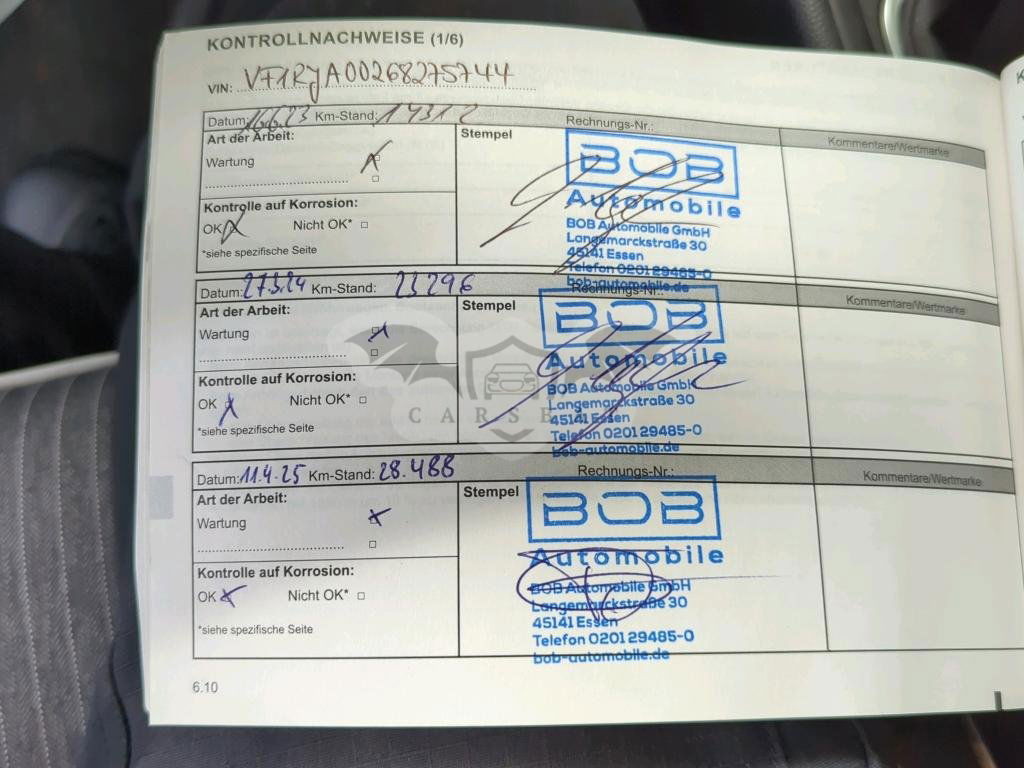 KONTROLLNACHWEISE (1/6)
VIN: VF1RJA00268275744
Datum: 16.6.23 Km-Stand: 14312 Rechnungs-Nr.:
Art der Arbeit: Stempel Kommentare/Wertmarke
Wartung
BOB
Automobile
Kontrolle auf Korrosion:
OK Nicht OK*
*siehe spezifische Seite
BOB Automobile GmbH
Langemarckstraße 30
45141 Essen
Telefon 0201 29485-0
bob-automobile.de
Datum: 27.3.24 Km-Stand: 23296 Rechnungs-Nr.:
Art der Arbeit: Stempel Kommentare/Wertmarke
Wartung
BOB
Automobile
Kontrolle auf Korrosion:
OK Nicht OK*
*siehe spezifische Seite
BOB Automobile GmbH
Langemarckstraße 30
45141 Essen
Telefon 0201 29485-0
bob-automobile.de
Datum: 11.4.25 Km-Stand: 28.488 Rechnungs-Nr.:
Art der Arbeit: Stempel Kommentare/Wertmarke
Wartung
BOB
Automobile
Kontrolle auf Korrosion:
OK Nicht OK*
*siehe spezifische Seite
BOB Automobile GmbH
Langemarckstraße 30
45141 Essen
Telefon 0201 29485-0
bob-automobile.de
6.10